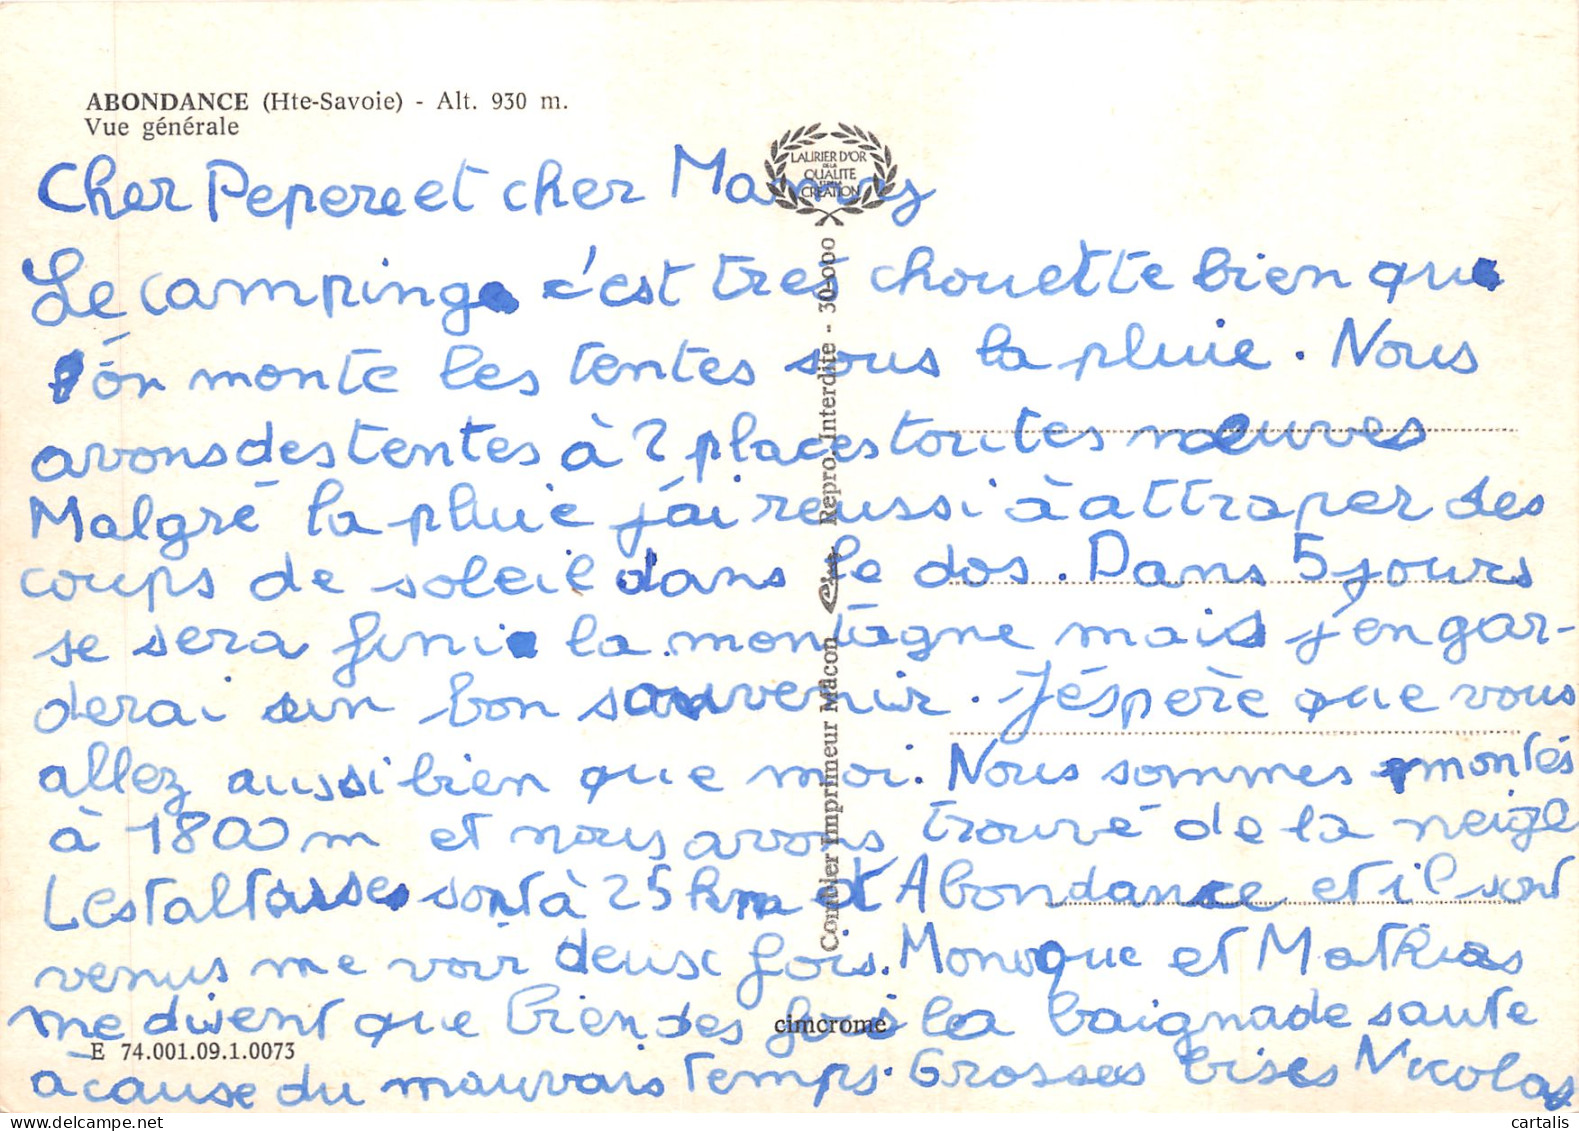 ABONDANCE (Hte-Savoie) - Alt. 930 m.
Vue générale
LAURIER D'OR
DE LA
QUALITE
ET DE LA
CREATION
Cher Pepere et cher Mamy
Le camping c'est tres chouette bien que
l'on monte les tentes sous la pluie. Nous
avons des tentes à 2 places toutes neuves
Malgré la pluie j'ai reussi à attraper des
coups de soleil dans le dos. Dans 5 jours
se sera fini la montagne mais j'en gar-
derai un bon souvenir. J'éspère que vous
allez aussi bien que moi. Nous sommes montés
à 1800m et nous avons trouvé de la neige
Les sont à 25 km d'Abondance et il sont
venus me voir deux fois. Monique et Mathias
me disent que bien des fois la baignade saute
a cause du mauvais temps. Grosses bises Nicolas
Combier Imprimeur Mâcon Cim Repro. Interdite - 30-000
cimcrome
E 74.001.09.1.0073
cartalis